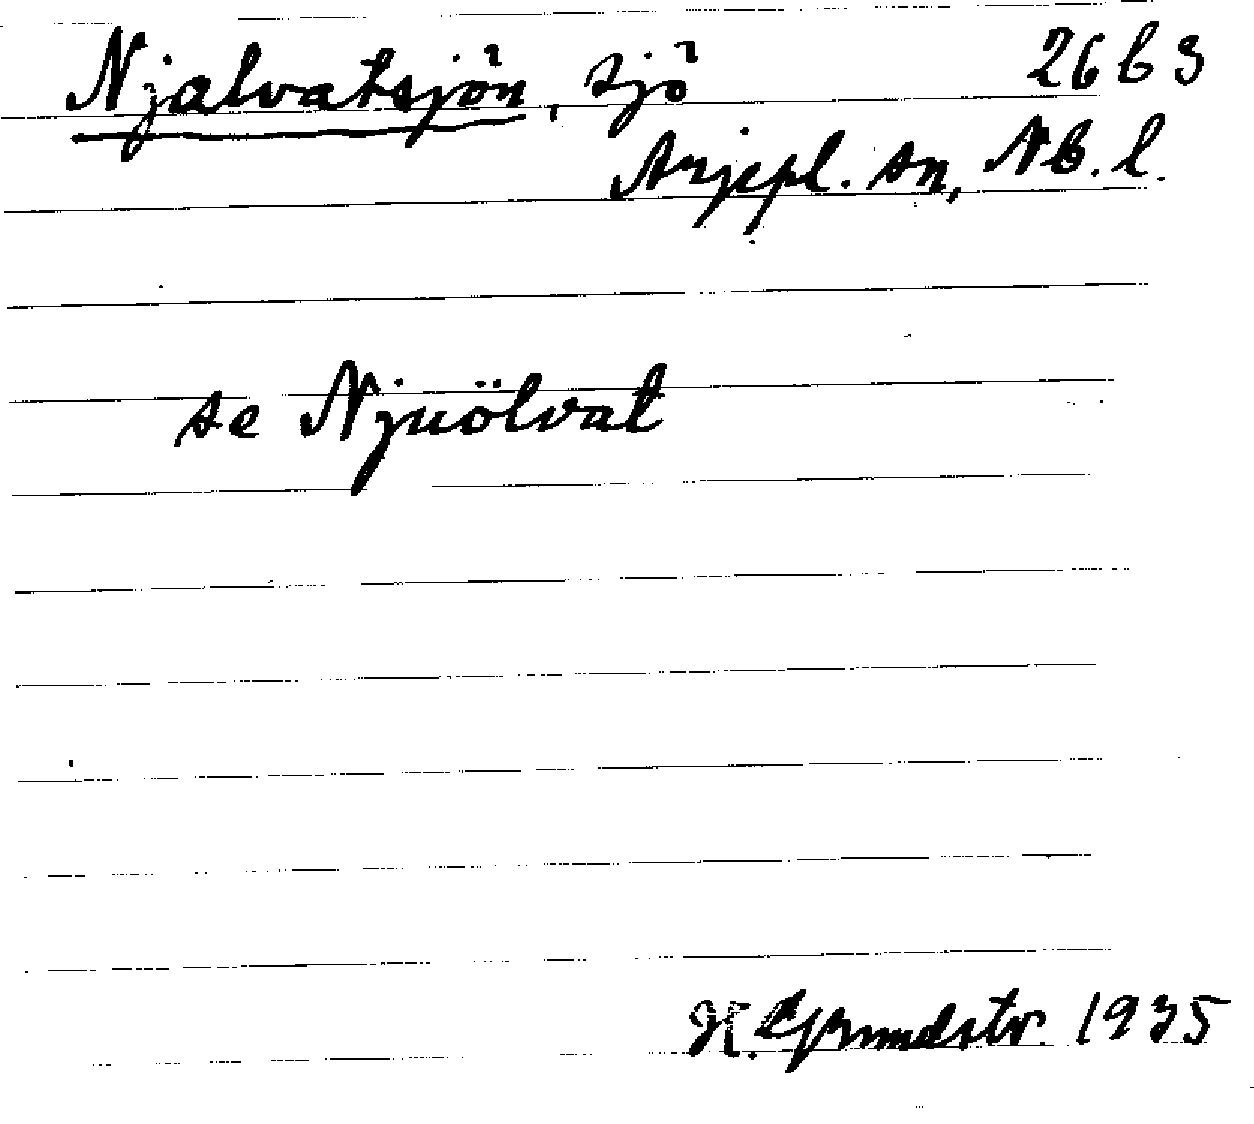 Njalvatsjön, sjö 2663
Arjepl. sn, Nb. l.
se Njuölvat
H. Grundstr. 1935